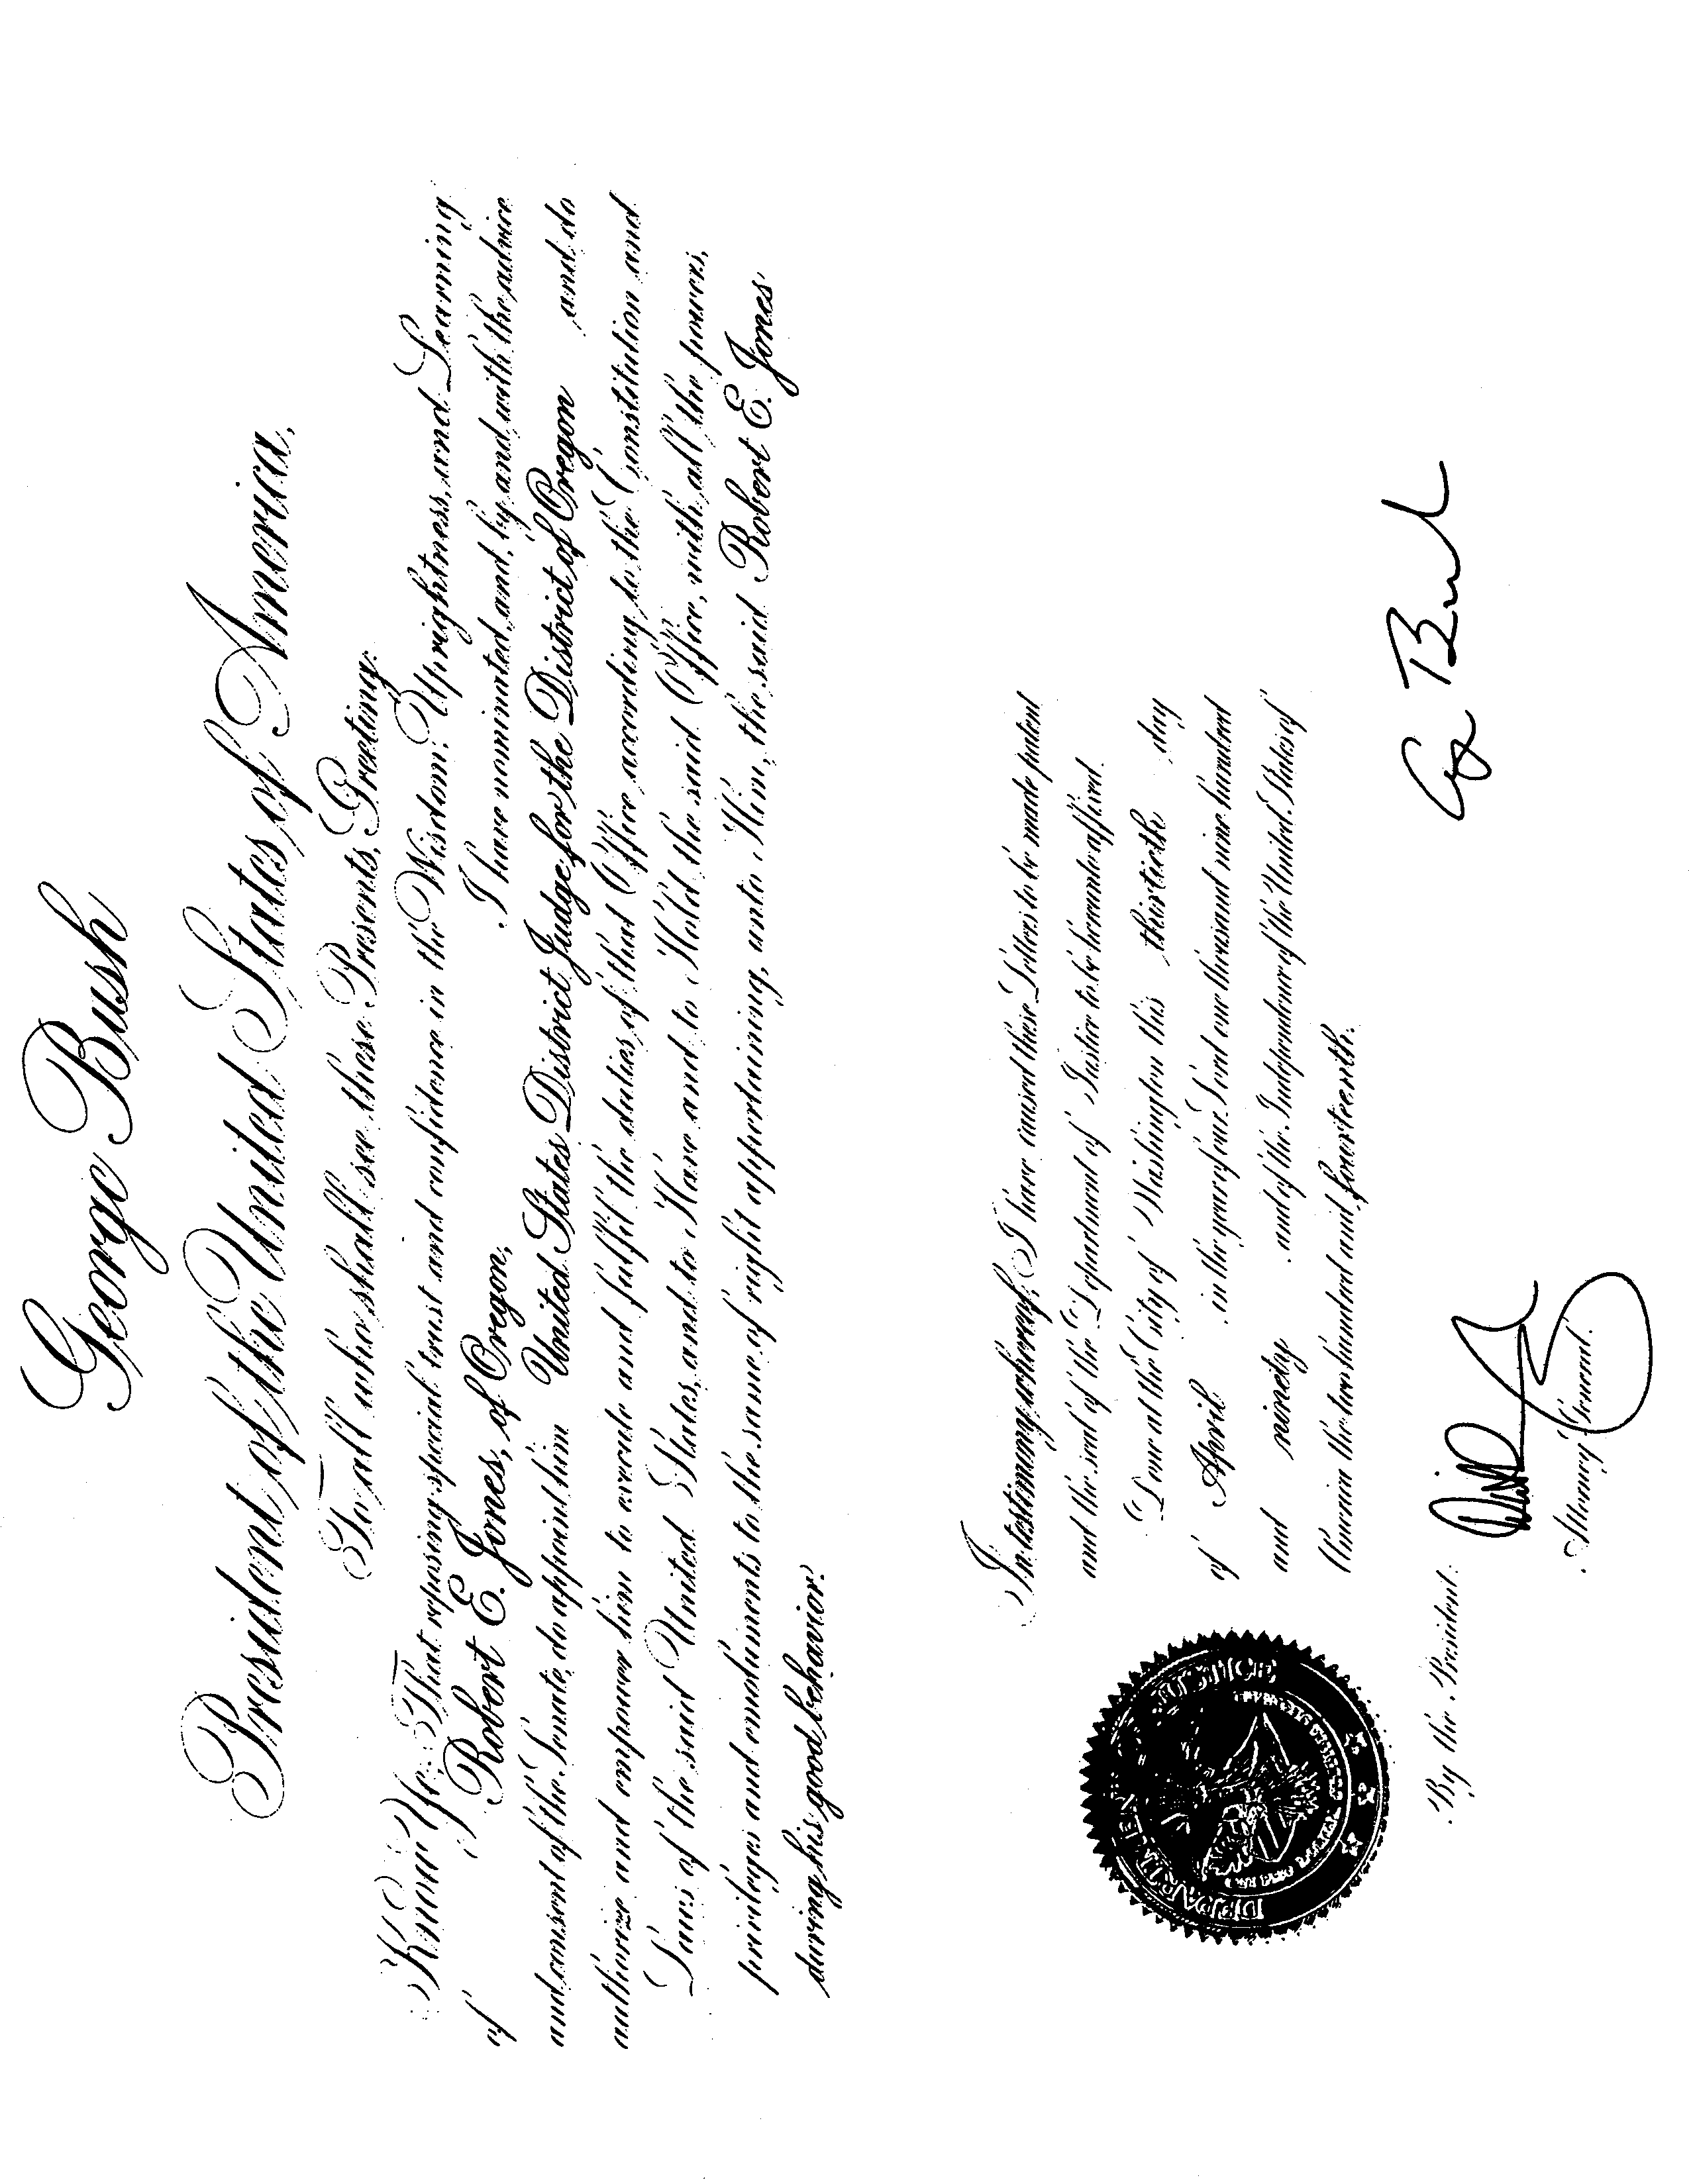 George Bush
President of the United States of America,
To all who shall see these Presents, Greeting:
Know Ye; That reposing special trust and confidence in the Wisdom, Uprightness, and Learning
of Robert E. Jones, of Oregon, I have nominated, and, by and with the advice
and consent of the Senate, do appoint him United States District Judge for the District of Oregon and do
authorize and empower him to execute and fulfil the duties of that Office according to the Constitution and
Laws of the said United States, and to Have and to Hold the said Office, with all the powers,
privileges and emoluments to the same of right appertaining, unto Him, the said Robert E. Jones
during his good behavior.
In testimony whereof, I have caused these Letters to be made patent
and the seal of the Department of Justice to be hereunto affixed.
Done at the City of Washington this thirtieth day
of April in the year of our Lord one thousand nine hundred
and ninety and of the Independence of the United States of
America the two hundred and fourteenth.
G Bush
By the President:
Attorney General.
DEPARTMENT JUSTICE